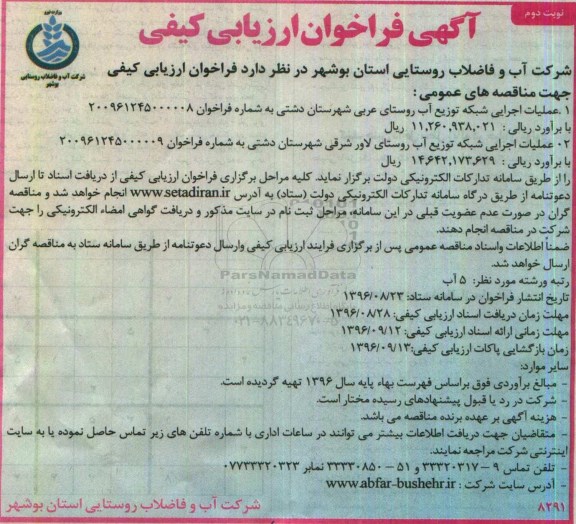 نوبت دوم
آگهی فراخوان ارزیابی کیفی
شرکت آب و فاضلاب روستایی بوشهر
شرکت آب و فاضلاب روستایی استان بوشهر در نظر دارد فراخوان ارزیابی کیفی
جهت مناقصه های عمومی :
۱ .عملیات اجرایی شبکه توزیع آب روستای عربی شهرستان دشتی به شماره فراخوان ۲۰۰۹۶۱۲۴۵۰۰۰۰۰۸
با برآورد ریالی : ۱۱،۲۶۰،۹۳۸،۰۲۱ ریال
۰۲ عملیات اجرایی شبکه توزیع آب روستای لاور شرقی شهرستان دشتی به شماره فراخوان ۲۰۰۹۶۱۲۴۵۰۰۰۰۰۹
با برآورد ریالی : ۱۴،۶۴۲،۱۷۳،۶۲۹ ریال
را از طریق سامانه تدارکات الکترونیکی دولت برگزار نماید. کلیه مراحل برگزاری فراخوان ارزیابی کیفی از دریافت اسناد تا ارسال
دعوتنامه از طریق درگاه سامانه تدارکات الکترونیکی دولت (ستاد) به آدرس www.setadiran.ir انجام خواهد شد و مناقصه
گران در صورت عدم عضویت قبلی در این سامانه، مراحل ثبت نام در سایت مذکور و دریافت گواهی امضاء الکترونیکی را جهت
شرکت در مناقصه انجام دهند.
ضمناً اطلاعات واسناد مناقصه عمومی پس از برگزاری فرایند ارزیابی کیفی وارسال دعوتنامه از طریق سامانه ستاد به مناقصه گران
ارسال خواهد شد.
رتبه ورشته مورد نظر: ۵ آب
تاریخ انتشار فراخوان در سامانه ستاد: ۱۳۹۶/۰۸/۲۳
مهلت زمان دریافت اسناد ارزیابی کیفی: ۱۳۹۶/۰۸/۲۸
مهلت زمانی ارائه اسناد ارزیابی کیفی: ۱۳۹۶/۰۹/۱۲
زمان بازگشایی پاکات ارزیابی کیفی:۱۳۹۶/۰۹/۱۳
سایر موارد:
- مبالغ برآوردی فوق براساس فهرست بهاء پایه سال ۱۳۹۶ تهیه گردیده است.
- شرکت در رد یا قبول پیشنهادهای رسیده مختار است.
- هزینه آگهی بر عهده برنده مناقصه می باشد.
- متقاضیان جهت دریافت اطلاعات بیشتر می توانند در ساعات اداری با شماره تلفن های زیر تماس حاصل نموده یا به سایت
اینترنتی شرکت مراجعه نمایند.
- تلفن تماس ۹ – ۳۳۳۲۰۳۱۷ و ۵۱ – ۳۳۳۳۰۸۵۰ نمابر ۰۷۷۳۳۳۲۰۳۲۳
- آدرس سایت شرکت : www.abfar-bushehr.ir
۸۲۹۱
شرکت آب و فاضلاب روستایی استان بوشهر
ParsNamadData
۰۲۱-۸۸۳۴۹۶۷۰-۵